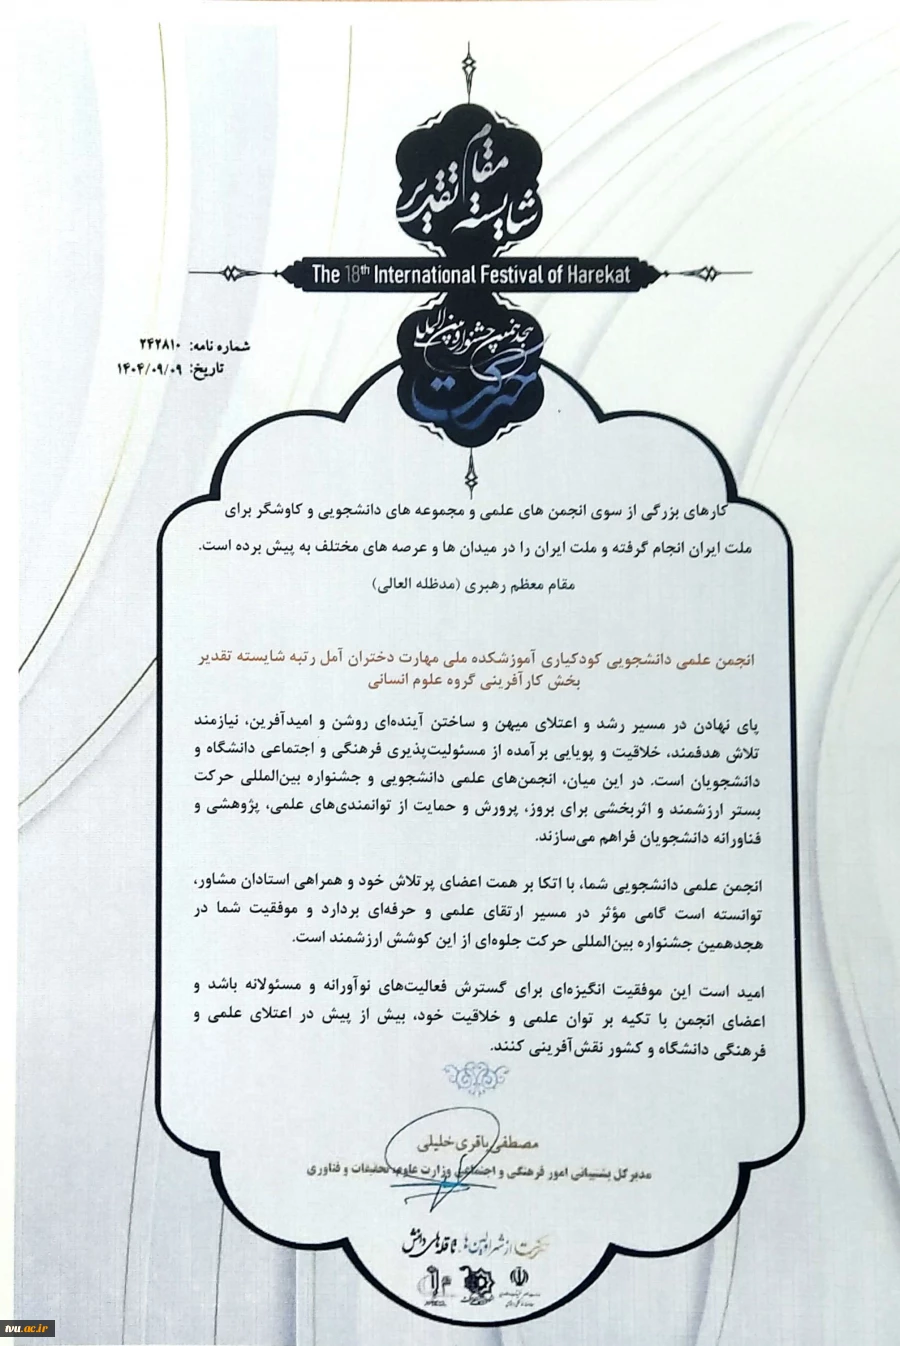 مقام
شایسته تقدیر
The 18th International Festival of Harekat
هجدهمین جشنواره بین المللی
حرکت
شماره نامه: ۲۴۲۸۱۰
تاریخ: ۱۴۰۴/۰۹/۰۹
کارهای بزرگی از سوی انجمن های علمی و مجموعه های دانشجویی و کاوشگر برای
ملت ایران انجام گرفته و ملت ایران را در میدان ها و عرصه های مختلف به پیش برده است.
مقام معظم رهبری (مدظله العالی)
انجمن علمی دانشجویی کودکیاری آموزشکده ملی مهارت دختران آمل رتبه شایسته تقدیر
بخش کارآفرینی گروه علوم انسانی
پای نهادن در مسیر رشد و اعتلای میهن و ساختن آینده‌ای روشن و امیدآفرین، نیازمند
تلاش هدفمند، خلاقیت و پویایی برآمده از مسئولیت‌پذیری فرهنگی و اجتماعی دانشگاه و
دانشجویان است. در این میان، انجمن‌های علمی دانشجویی و جشنواره بین‌المللی حرکت
بستر ارزشمند و اثربخشی برای بروز، پرورش و حمایت از توانمندی‌های علمی، پژوهشی و
فناورانه دانشجویان فراهم می‌سازند.
انجمن علمی دانشجویی شما، با اتکا بر همت اعضای پرتلاش خود و همراهی استادان مشاور،
توانسته است گامی مؤثر در مسیر ارتقای علمی و حرفه‌ای بردارد و موفقیت شما در
هجدهمین جشنواره بین‌المللی حرکت جلوه‌ای از این کوشش ارزشمند است.
امید است این موفقیت انگیزه‌ای برای گسترش فعالیت‌های نوآورانه و مسئولانه باشد و
اعضای انجمن با تکیه بر توان علمی و خلاقیت خود، بیش از پیش در اعتلای علمی و
فرهنگی دانشگاه و کشور نقش‌آفرینی کنند.
مصطفی باقری خلیلی
مدیرکل پشتیبانی امور فرهنگی و اجتماعی وزارت علوم، تحقیقات و فناوری
حرکت از شهر اولین‌ها تا قله‌های دانش
tvu.ac.ir